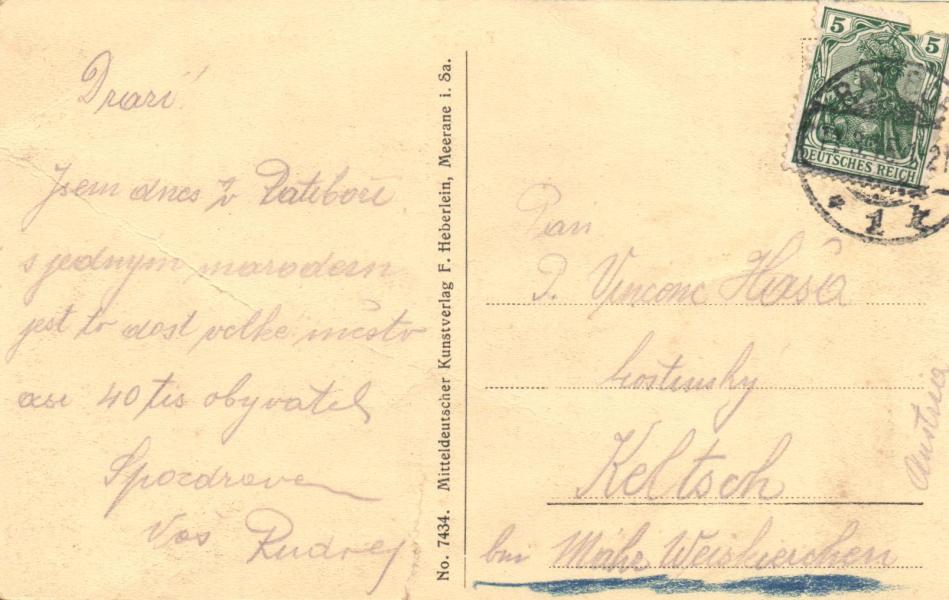 Drazí!
Jsem dnes v Ratiboři
s jedným marodem
jest to dost velke město
asi 40 tis obyvatel
Spozdravem
Váš Rudolf
No. 7434. Mitteldeutscher Kunstverlag F. Heberlein, Meerane i. Sa.
5 5
DEUTSCHES REICH
Pan
P. Vincenc
hostinský
Keltsch
bei Mähr Weiskirchen
Austria